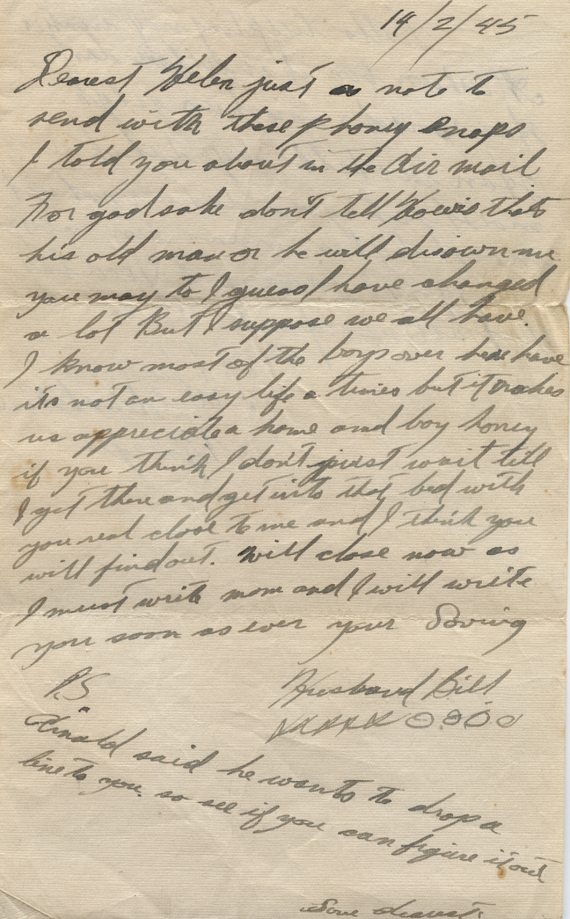 14/2/45
Dearest Helen just a note to
send with these phoney snaps
I told you about in the Air mail
For god sake don't tell thats
his old man or he will disown me
you may to I guess I have changed
a lot But I suppose we all have.
I know most of the boys over here have
its not an easy life a times but it makes
us appreciate a home and boy honey
if you think I don't just wait till
I get there and get into that bed with
you real close to me and I think you
will find out. Will close now as
I must write mom and I will write
you soon as ever your Loving
Husband Bill
P.S
said he wants to drop a
line to you. so see if you can figure it out
Love dearest